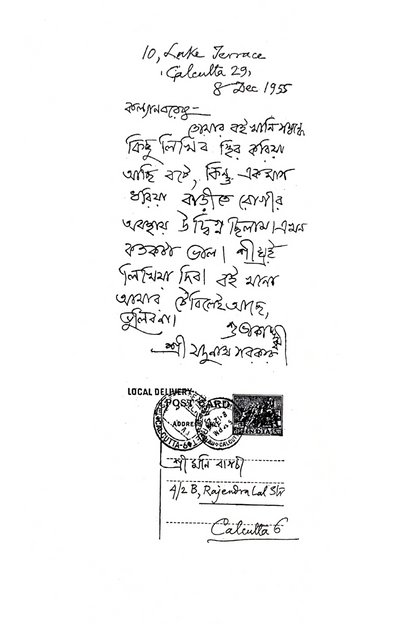 10, Lake Terrace
Calcutta 29,
8 Dec 1955
কল্যানবরেষু-
তোমার বইখানি সম্বন্ধে
কিছু লিখিব স্থির করিয়া
আছি বটে, কিন্তু একমাস
ধরিয়া বাড়ীতে রোগীর
অবস্থায় উদ্বিগ্ন ছিলাম। এখন
কতকটা ভাল। শীঘ্রই
লিখিয়া দিব। বই খানা
আমার টেবিলেই আছে,
ভুলিবনা।
শুভাকাঙ্ক্ষী
শ্রী যদুনাথ সরকার
LOCAL DELIVERY
POST CARD
ADDRESS
INDIA
শ্রী মনি বাগচী
4/2 B, Rajendra Lal Str
Calcutta 6